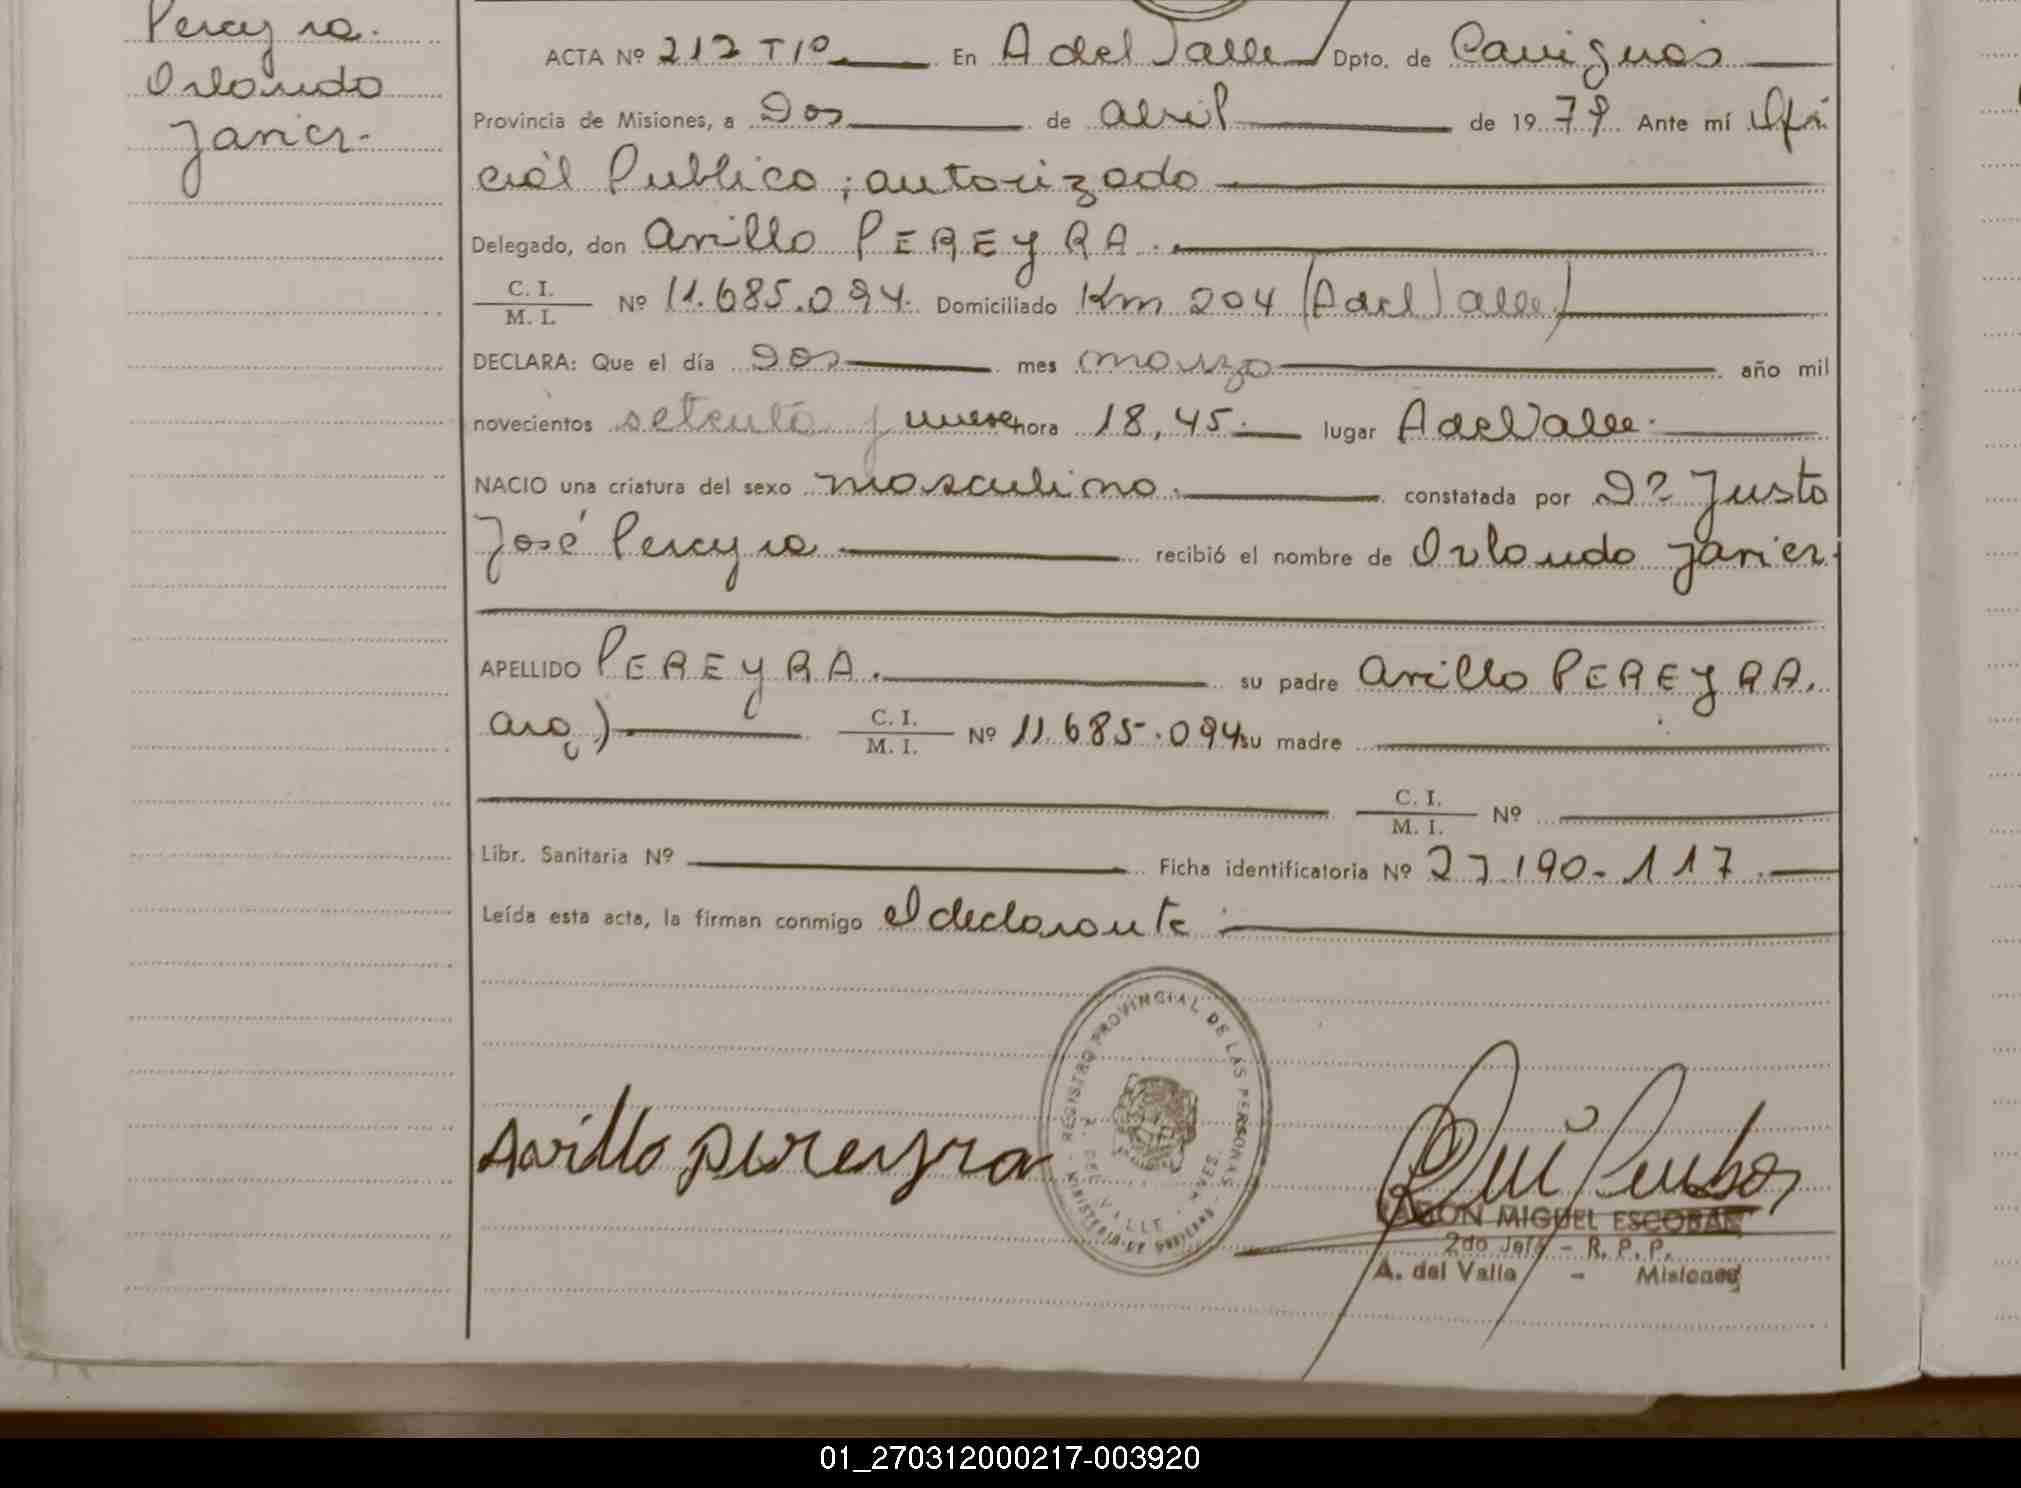 Pereyra.
Orlando
Javier-
ACTA Nº 212 Tº En A del Valle Dpto. de Cainguás
Provincia de Misiones, a Dos de abril de 1979 Ante mí Ofi
cial Publico; autorizado
Delegado, don Arillo PEREYRA.
C. I.
M. I.
Nº 11.685.094. Domiciliado Km 204 (A del Valle)
DECLARA: Que el día Dos mes marzo año mil
novecientos setenta y nueve hora 18,45. lugar A del Valle.
NACIO una criatura del sexo masculino. constatada por Dº Justo
José Pereyra recibió el nombre de Orlando Javier.
APELLIDO PEREYRA. su padre Arillo PEREYRA.
arg) C. I.
M. I. Nº 11.685.094 su madre
C. I.
M. I. Nº
Libr. Sanitaria Nº Ficha identificatoria Nº 27.190-117.
Leída esta acta, la firman conmigo el declarante.
REGISTRO PROVINCIAL DE LAS PERSONAS
A. DEL VALLE - MNES.
MINISTERIO DE GOBIERNO
Arillo pereyra
RAMON MIGUEL ESCOBAR
2do Jefe - R. P. P.
A. del Valle - Misiones
01_270312000217-003920